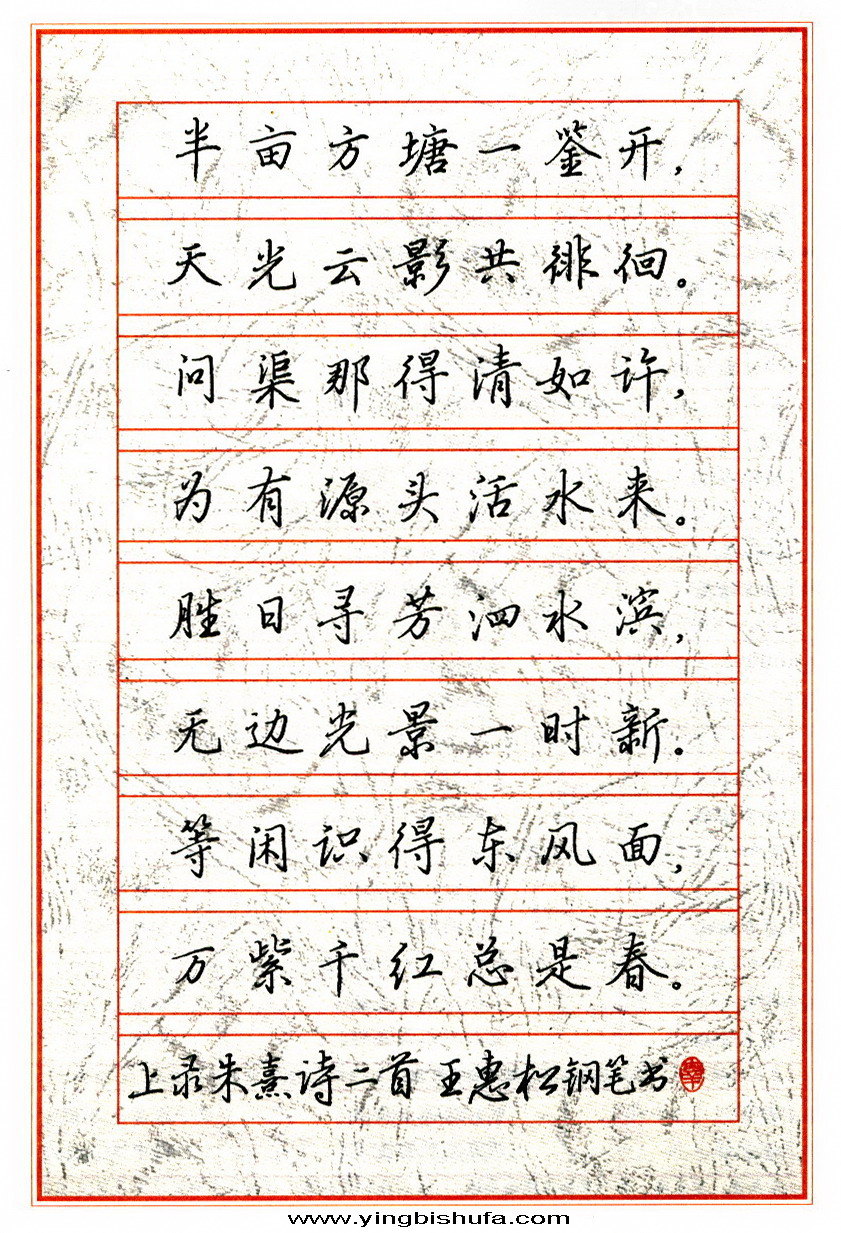 半亩方塘一鉴开，
天光云影共徘徊。
问渠那得清如许，
为有源头活水来。
胜日寻芳泗水滨，
无边光景一时新。
等闲识得东风面，
万紫千红总是春。
上录朱熹诗二首 王惠松钢笔书
www.yingbishufa.com